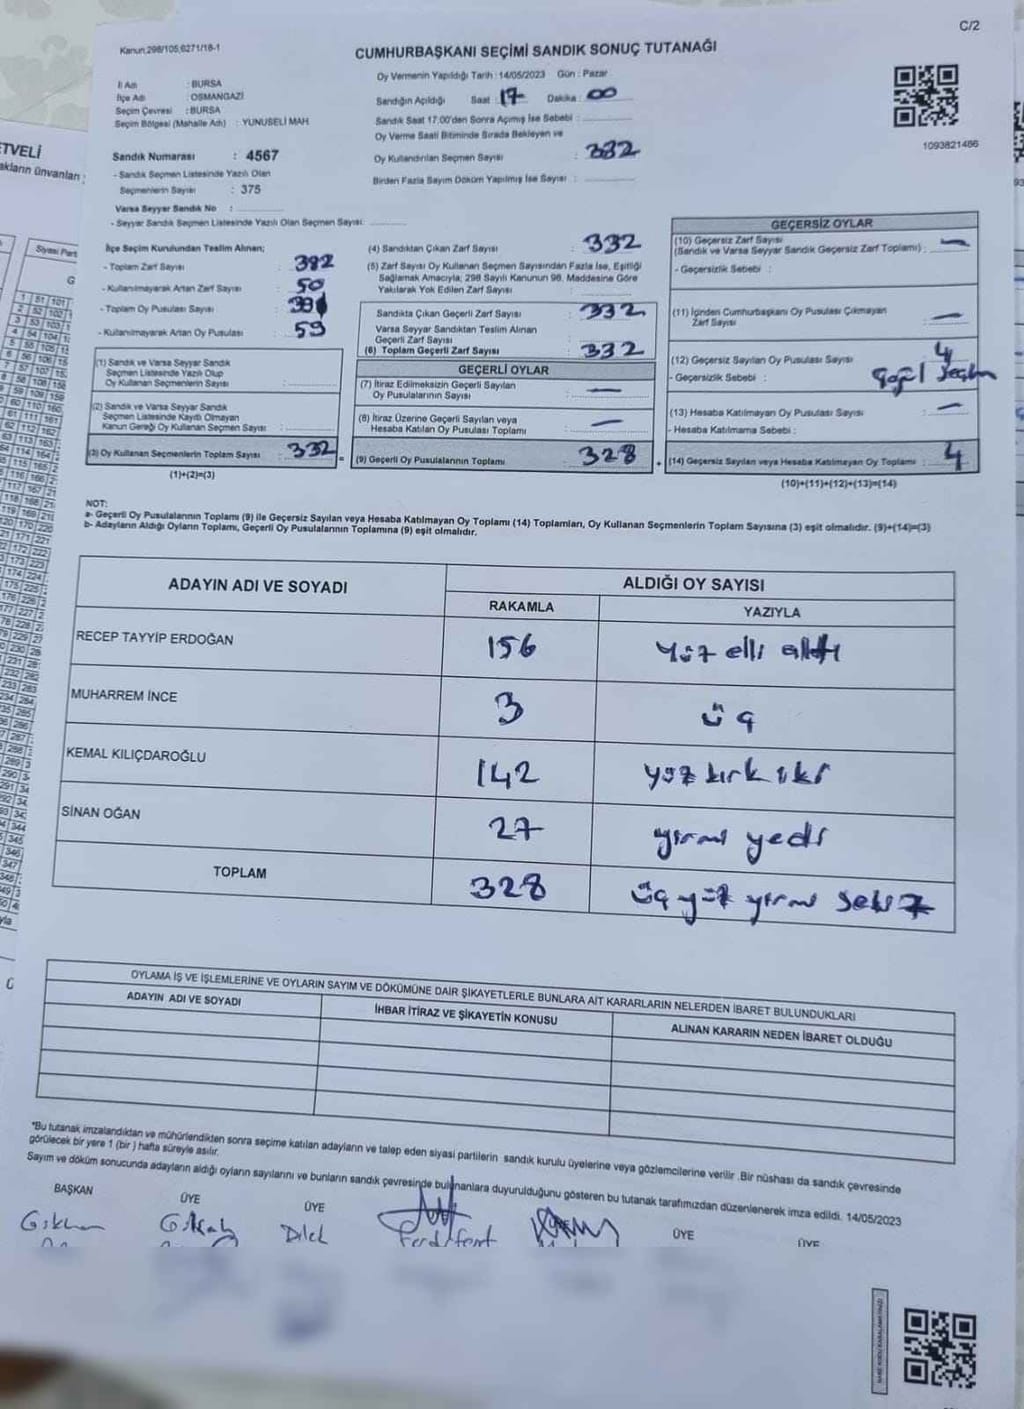 C/2
Kanun,298/105,6271/18-1
CUMHURBAŞKANI SEÇİMİ SANDIK SONUÇ TUTANAĞI
İl Adı : BURSA
İlçe Adı : OSMANGAZİ
Seçim Çevresi : BURSA
Seçim Bölgesi (Mahalle Adı) : YUNUSELİ MAH
Sandık Numarası : 4567
- Sandık Seçmen Listesinde Yazılı Olan
Seçmenlerin Sayısı : 375
Varsa Seyyar Sandık No :
- Seyyar Sandık Seçmen Listesinde Yazılı Olan Seçmen Sayısı:
Oy Vermenin Yapıldığı Tarih : 14/05/2023 Gün : Pazar
Sandığın Açıldığı Saat : 17 Dakika : 00
Sandık Saat 17:00'den Sonra Açımış İse Sebebi :
Oy Verme Saati Bitiminde Sırada Bekleyen ve
Oy Kullandırılan Seçmen Sayısı : 332
Birden Fazla Sayım Döküm Yapılmış İse Sayısı :
1093821486
İlçe Seçim Kurulundan Teslim Alınan;
- Toplam Zarf Sayısı : 382
- Kullanılmayarak Artan Zarf Sayısı : 50
- Toplam Oy Pusulası Sayısı :
- Kullanılmayarak Artan Oy Pusulası : 59
(1) Sandık ve Varsa Seyyar Sandık
Seçmen Listesinde Yazılı Olup
Oy Kullanan Seçmenlerin Sayısı :
(2) Sandık ve Varsa Seyyar Sandık
Seçmen Listesinde Kayıtlı Olmayan
Kanun Gereği Oy Kullanan Seçmen Sayısı :
(3) Oy Kullanan Seçmenlerin Toplam Sayısı : 332
(1)+(2)=(3)
(4) Sandıktan Çıkan Zarf Sayısı : 332
(5) Zarf Sayısı Oy Kullanan Seçmen Sayısından Fazla İse, Eşitliği
Sağlamak Amacıyla; 298 Sayılı Kanunun 98. Maddesine Göre
Yakılarak Yok Edilen Zarf Sayısı :
Sandıkta Çıkan Geçerli Zarf Sayısı : 332
Varsa Seyyar Sandıktan Teslim Alınan
Geçerli Zarf Sayısı
(6) Toplam Geçerli Zarf Sayısı : 332
GEÇERLİ OYLAR
(7) İtiraz Edilmeksizin Geçerli Sayılan
Oy Pusulalarının Sayısı : —
(8) İtiraz Üzerine Geçerli Sayılan veya
Hesaba Katılan Oy Pusulası Toplamı : —
= (9) Geçerli Oy Pusulalarının Toplamı : 328
GEÇERSİZ OYLAR
(10) Geçersiz Zarf Sayısı
(Sandık ve Varsa Seyyar Sandık Geçersiz Zarf Toplamı) : —
- Geçersizlik Sebebi :
(11) İçinden Cumhurbaşkanı Oy Pusulası Çıkmayan
Zarf Sayısı : —
(12) Geçersiz Sayılan Oy Pusulası Sayısı : 4
- Geçersizlik Sebebi :
(13) Hesaba Katılmayan Oy Pusulası Sayısı : —
- Hesaba Katılmama Sebebi :
+ (14) Geçersiz Sayılan veya Hesaba Katılmayan Oy Toplamı : 4
(10)+(11)+(12)+(13)=(14)
NOT:
a- Geçerli Oy Pusulalarının Toplamı (9) ile Geçersiz Sayılan veya Hesaba Katılmayan Oy Toplamı (14) Toplamları, Oy Kullanan Seçmenlerin Toplam Sayısına (3) eşit olmalıdır. (9)+(14)=(3)
b- Adayların Aldığı Oyların Toplamı, Geçerli Oy Pusulalarının Toplamına (9) eşit olmalıdır.
ADAYIN ADI VE SOYADI ALDIĞI OY SAYISI
RAKAMLA YAZIYLA
RECEP TAYYİP ERDOĞAN 156 yüz elli altı
MUHARREM İNCE 3 üç
KEMAL KILIÇDAROĞLU 142 yüz kırk iki
SİNAN OĞAN 27 yirmi yedi
TOPLAM 328 üç yüz yirmi sekiz
OYLAMA İŞ VE İŞLEMLERİNE VE OYLARIN SAYIM VE DÖKÜMÜNE DAİR ŞİKAYETLERLE BUNLARA AİT KARARLARIN NELERDEN İBARET BULUNDUKLARI
ADAYIN ADI VE SOYADI İHBAR İTİRAZ VE ŞİKAYETİN KONUSU ALINAN KARARIN NEDEN İBARET OLDUĞU
*Bu tutanak imzalandıktan ve mühürlendikten sonra seçime katılan adayların ve talep eden siyasi partilerin sandık kurulu üyelerine veya gözlemcilerine verilir .Bir nüshası da sandık çevresinde
görülecek bir yere 1 (bir ) hafta süreyle asılır.
Sayım ve döküm sonucunda adayların aldığı oyların sayılarını ve bunların sandık çevresinde bulunanlara duyurulduğunu gösteren bu tutanak tarafımızdan düzenlenerek imza edildi. 14/05/2023
BAŞKAN ÜYE ÜYE ÜYE ÜYE
Gökhan Dilek